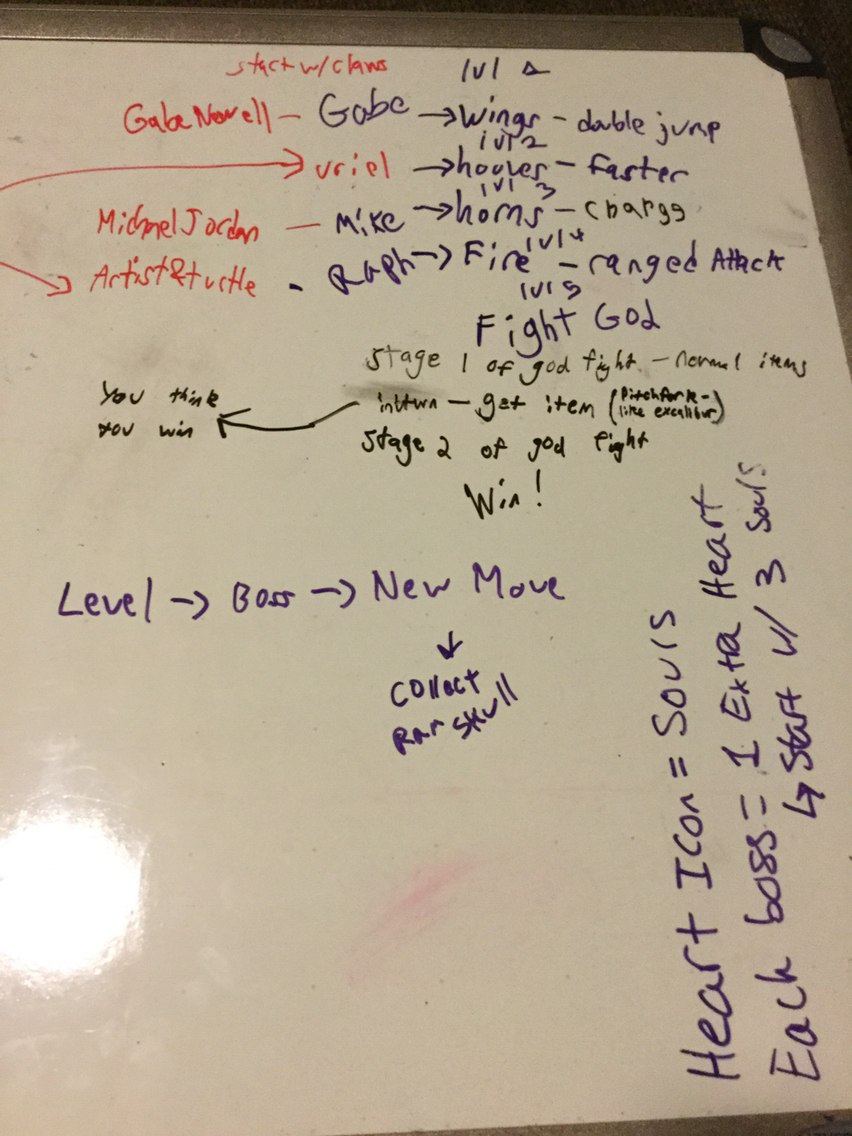 start w/ claws
lvl 1
Gabe Newell - Gabe → wings - double jump
lvl 2
uriel → hooves - faster
lvl 3
Michael Jordan - Mike → horns - charge
lvl 4
Artist & turtle - Raph → Fire - ranged Attack
lvl 5
Fight God
Stage 1 of god fight - normal items
You think
you win
- get item (Pitchfork-
like excalibur)
Stage 2 of god fight
Win!
Level → Boss → New Move
↓
collect
skull
Heart Icon = Souls
Each boss = 1 Extra Heart
↳ Start w/ 3 souls